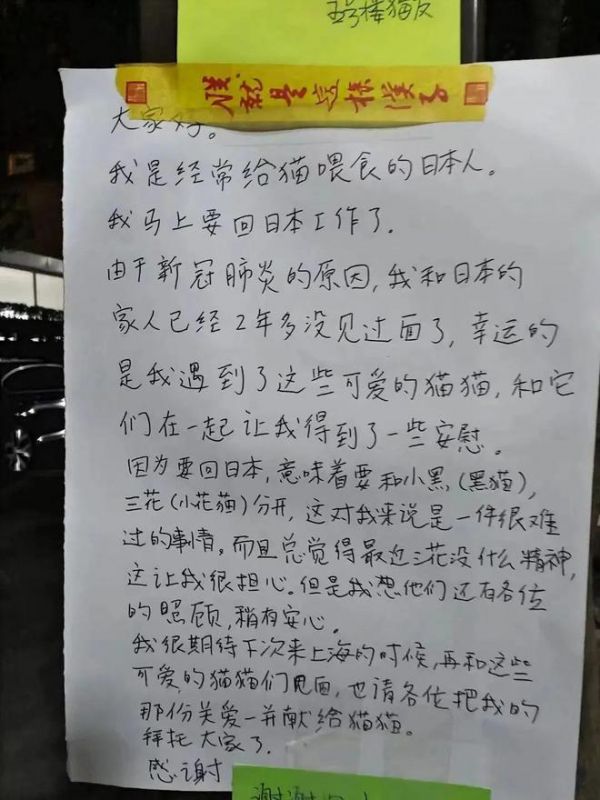 5号楼猫友
我就是这样汉子
大家好。
我是经常给猫喂食的日本人。
我马上要回日本工作了.
由于新冠肺炎的原因,我和日本的
家人已经2年多没见过面了,幸运的
是我遇到了这些可爱的猫猫,和它
们在一起让我得到了一些安慰。
因为要回日本,意味着要和小黑(黑猫),
三花(小花猫)分开,这对我来说是一件很难
过的事情。而且总觉得最近三花没什么精神,
这让我很担心。但是我想他们还有各位
的照顾,稍有安心。
我很期待下次来上海的时候,再和这些
可爱的猫猫们见面,也请各位把我的
那份关爱一并献给猫猫。
拜托大家了.
感谢
谢谢